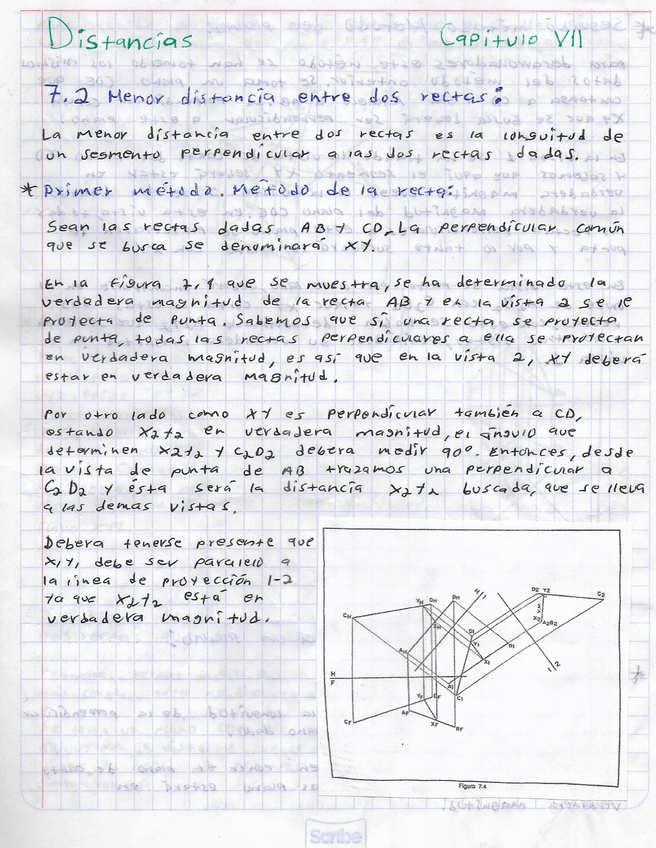 Distancias Capitulo VII
7.2 Menor distancia entre dos rectas:
La menor distancia entre dos rectas es la longuitud de
un segmento perpendicular a las dos rectas dadas.
* Primer método. Método de la recta:
Sean las rectas dadas AB y CD. La perpendicular común
que se busca se denominará XY.
En la figura 7.4 que se muestra, se ha determinado la
verdadera magnitud de la recta AB y en la vista 2 se le
proyecta de punta. Sabemos que si una recta se proyecta
de punta, todas las rectas perpendiculares a ella se proyectan
en verdadera magnitud, es así que en la vista 2, XY deberá
estar en verdadera magnitud.
Por otro lado como XY es perpendicular también a CD,
estando X2Y2 en verdadera magnitud, el ángulo que
determinen X2Y2 y C2D2 debera medir 90°. Entonces, desde
la vista de punta de AB trazamos una perpendicular a
C2D2 y ésta será la distancia X2Y2 buscada, que se lleva
a las demas vistas.
Debera tenerse presente que
X1Y1 debe ser paralelo a
la linea de proyección 1-2
ya que X2Y2 está en
verdadera magnitud.
CH
YH DH
DH
H 1
D2 Y2
C2
X2 A2B2
AH
D1
Y1
B1
X1
1 2
H
F
A1
C1
YF
EF
CF
AF
XF
BF
Figura 7.4
Scribe